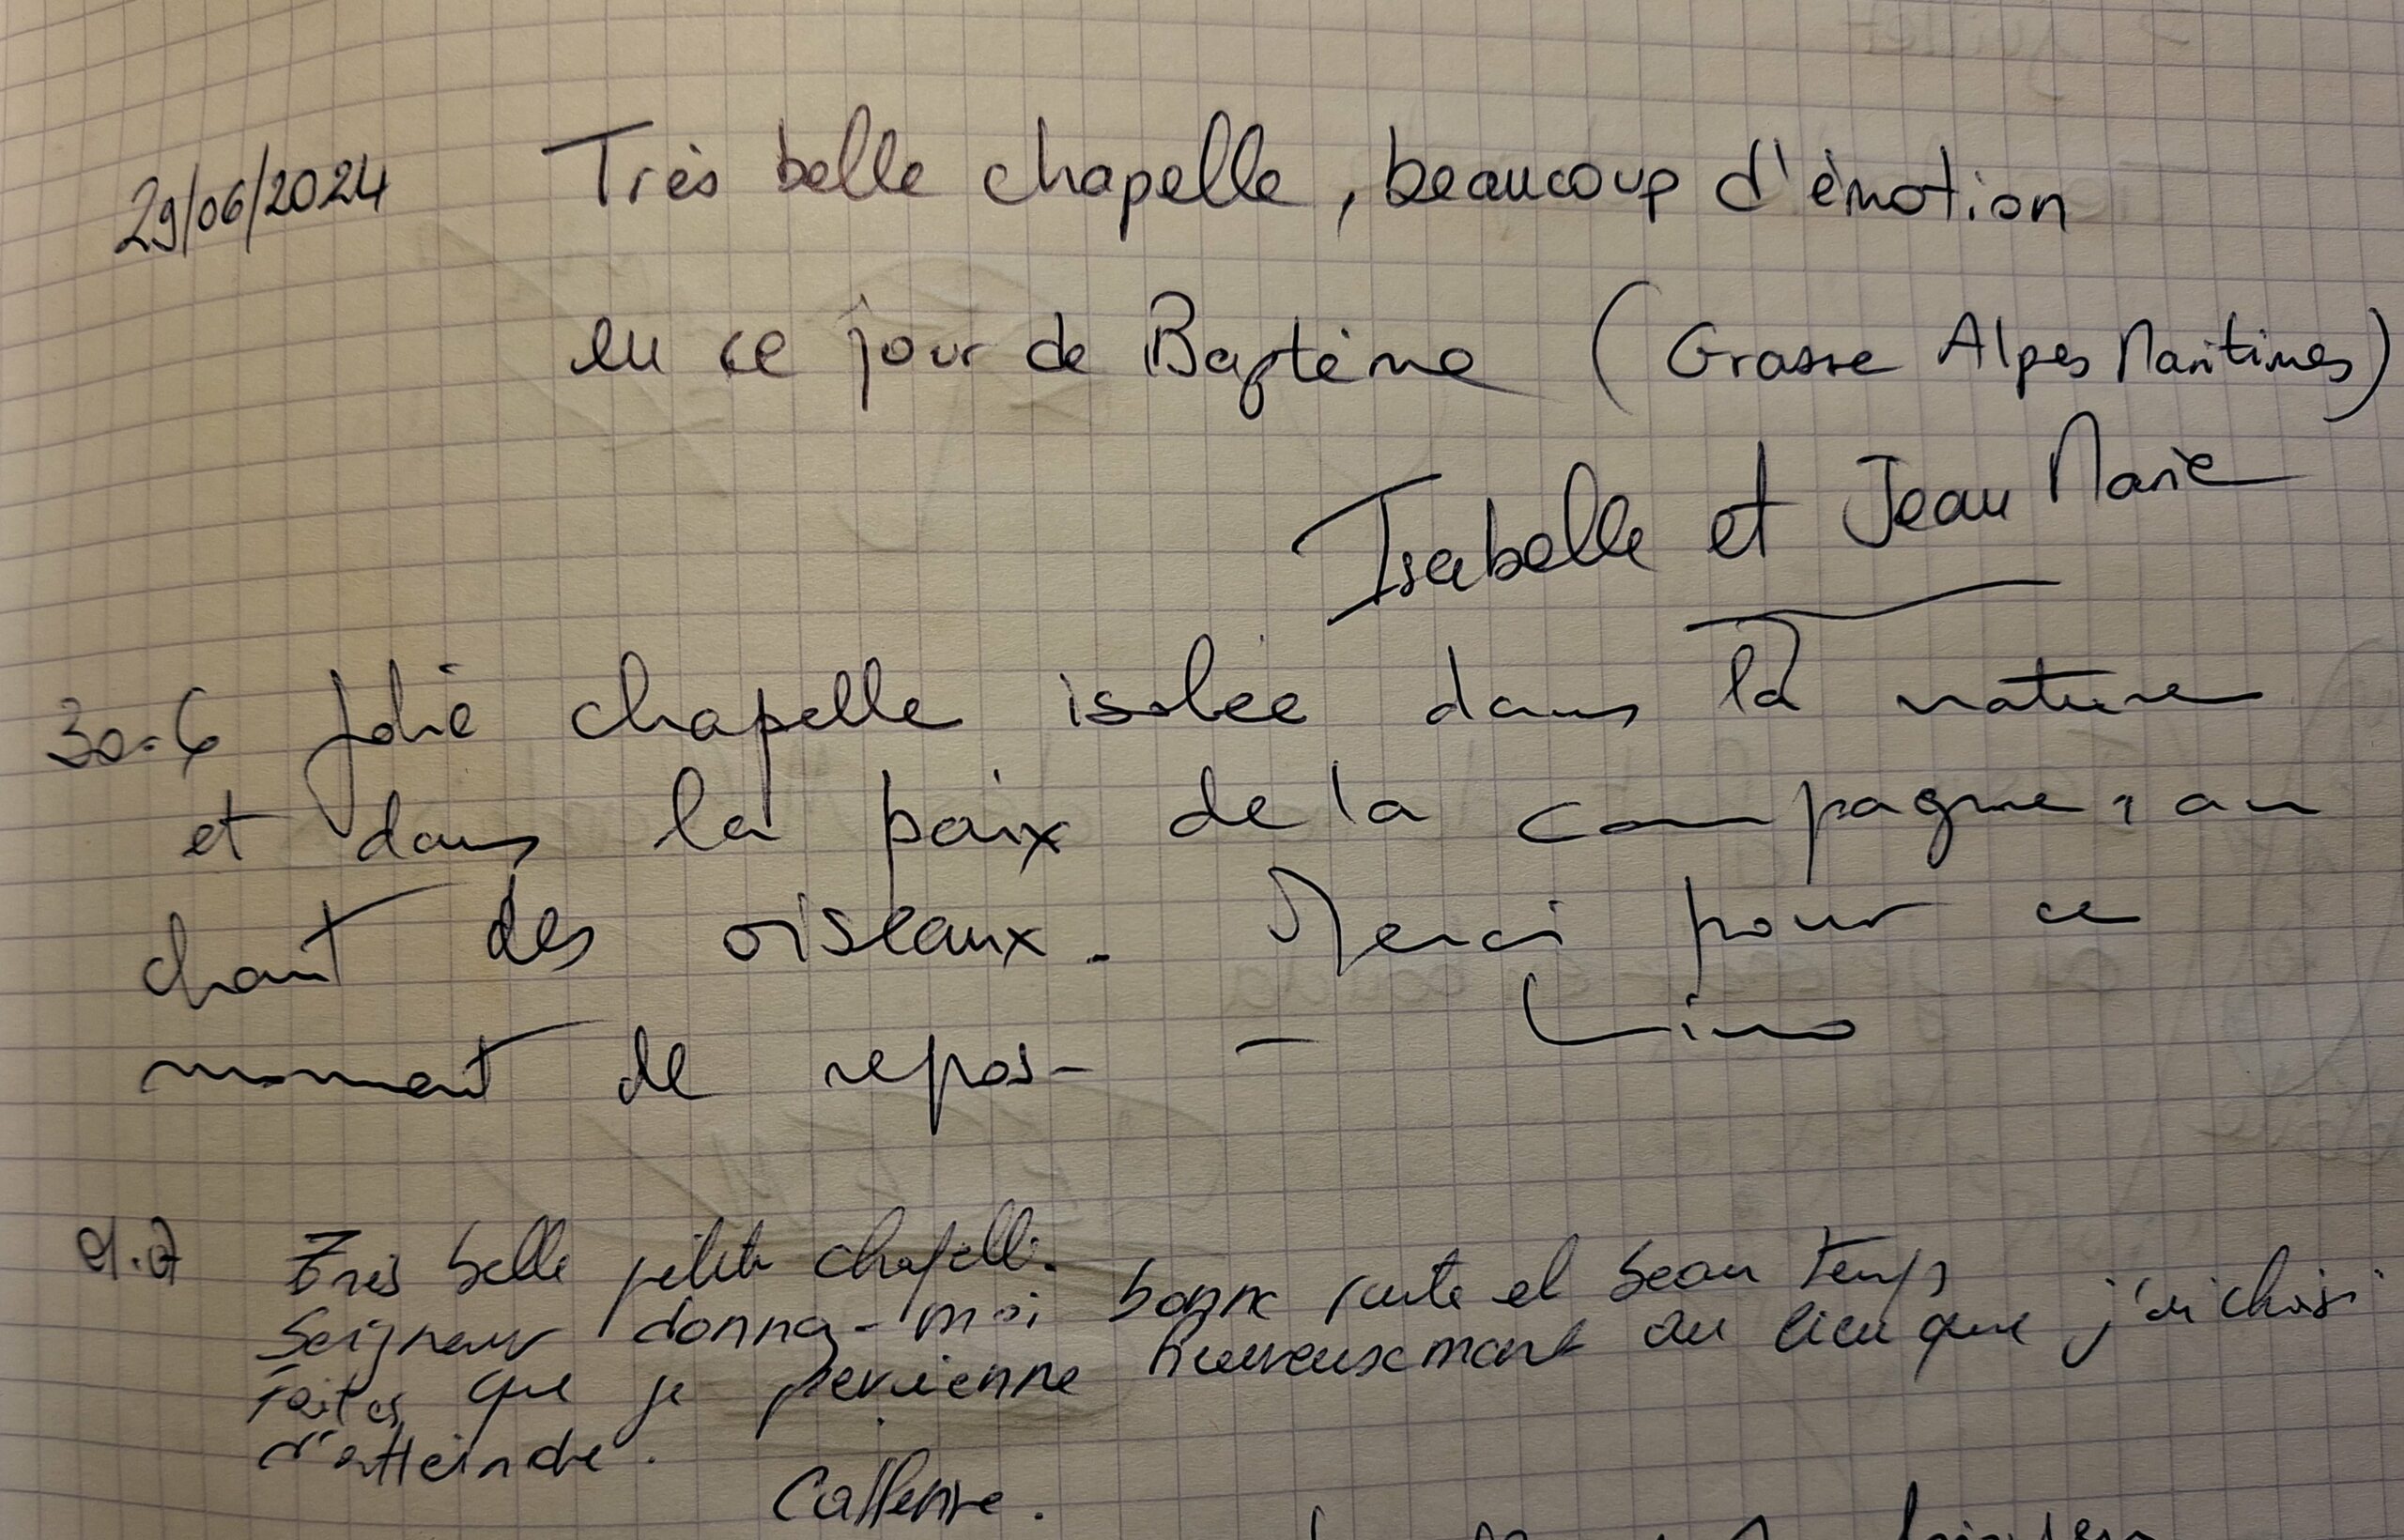 29/06/2024 Très belle chapelle, beaucoup d'émotion
en ce jour de Baptême (Grasse Alpes Maritimes)
Isabelle et Jean Marie
30.6 Jolie chapelle isolée dans la nature
et dans la paix de la campagne, au
chant des oiseaux. Merci pour ce
moment de repos - - Lino
Très belle petite chapelle.
Seigneur donne-moi bonne route et beau temps
Faites que je pervienne heureusement au lieu que j'ai choisi
d'atteindre.